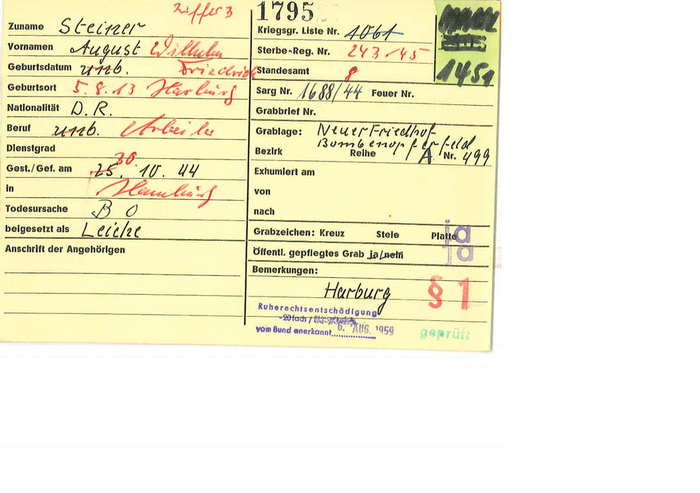 Ziffer 3
Zuname Steiner
Vornamen August Wilhelm
Geburtsdatum unb. Friedrich
Geburtsort 5.8.13 Harburg
Nationalität D.R.
Beruf unb. Arbeiter
Dienstgrad
30.
Gest./Gef. am 25. 10. 44
in Hamburg
Todesursache B O
beigesetzt als Leiche
Anschrift der Angehörigen
1795
Kriegsgr. Liste Nr. 1061
Sterbe-Reg. Nr. 243/45
Standesamt 8
1451
Sarg Nr. 1688/44 Feuer Nr.
Grabbrief Nr.
Grablage: Neuer Friedhof
Bombenopferfeld
Bezirk Reihe A Nr. 499
Exhumiert am
von
nach
Grabzeichen: Kreuz Stele Platte ja
Öffentl. gepflegtes Grab ja/nein ja
Bemerkungen:
Harburg
§ 1
Ruherechtsentschädigung
-20fach /
vom Bund anerkannt 6. AUG. 1959
geprüft